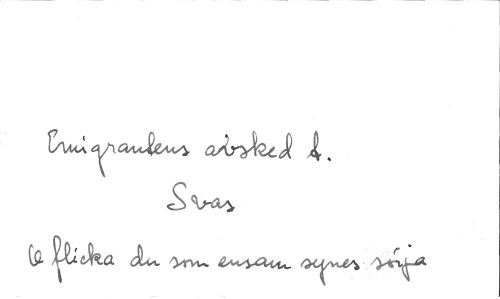 Emigrantens avsked t.
Svar
O flicka du som ensam synes sörja